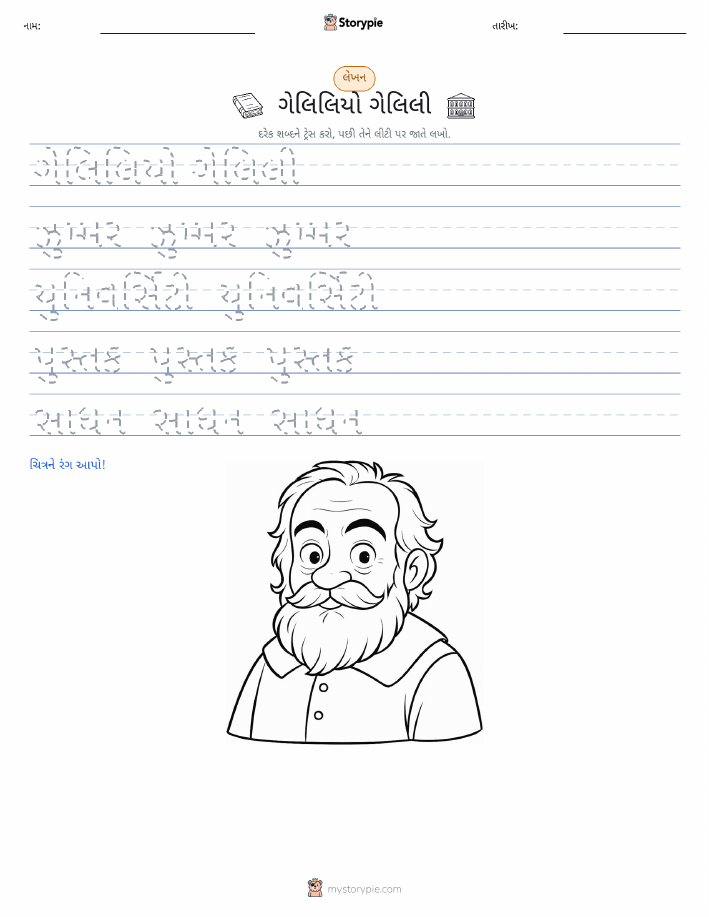 નામ:
Storypie
તારીખ:
લેખન
ગેલિલિયો ગેલિલી
દરેક શબ્દને ટ્રેસ કરો, પછી તેને લીટી પર જાતે લખો.
ગેલિલિયો ગેલિલી
ઝુમ્મર ઝુમ્મર ઝુમ્મર
યુનિવર્સિટી યુનિવર્સિટી
પુસ્તક પુસ્તક પુસ્તક
સાધન સાધન સાધન
ચિત્રને રંગ આપો!
mystorypie.com